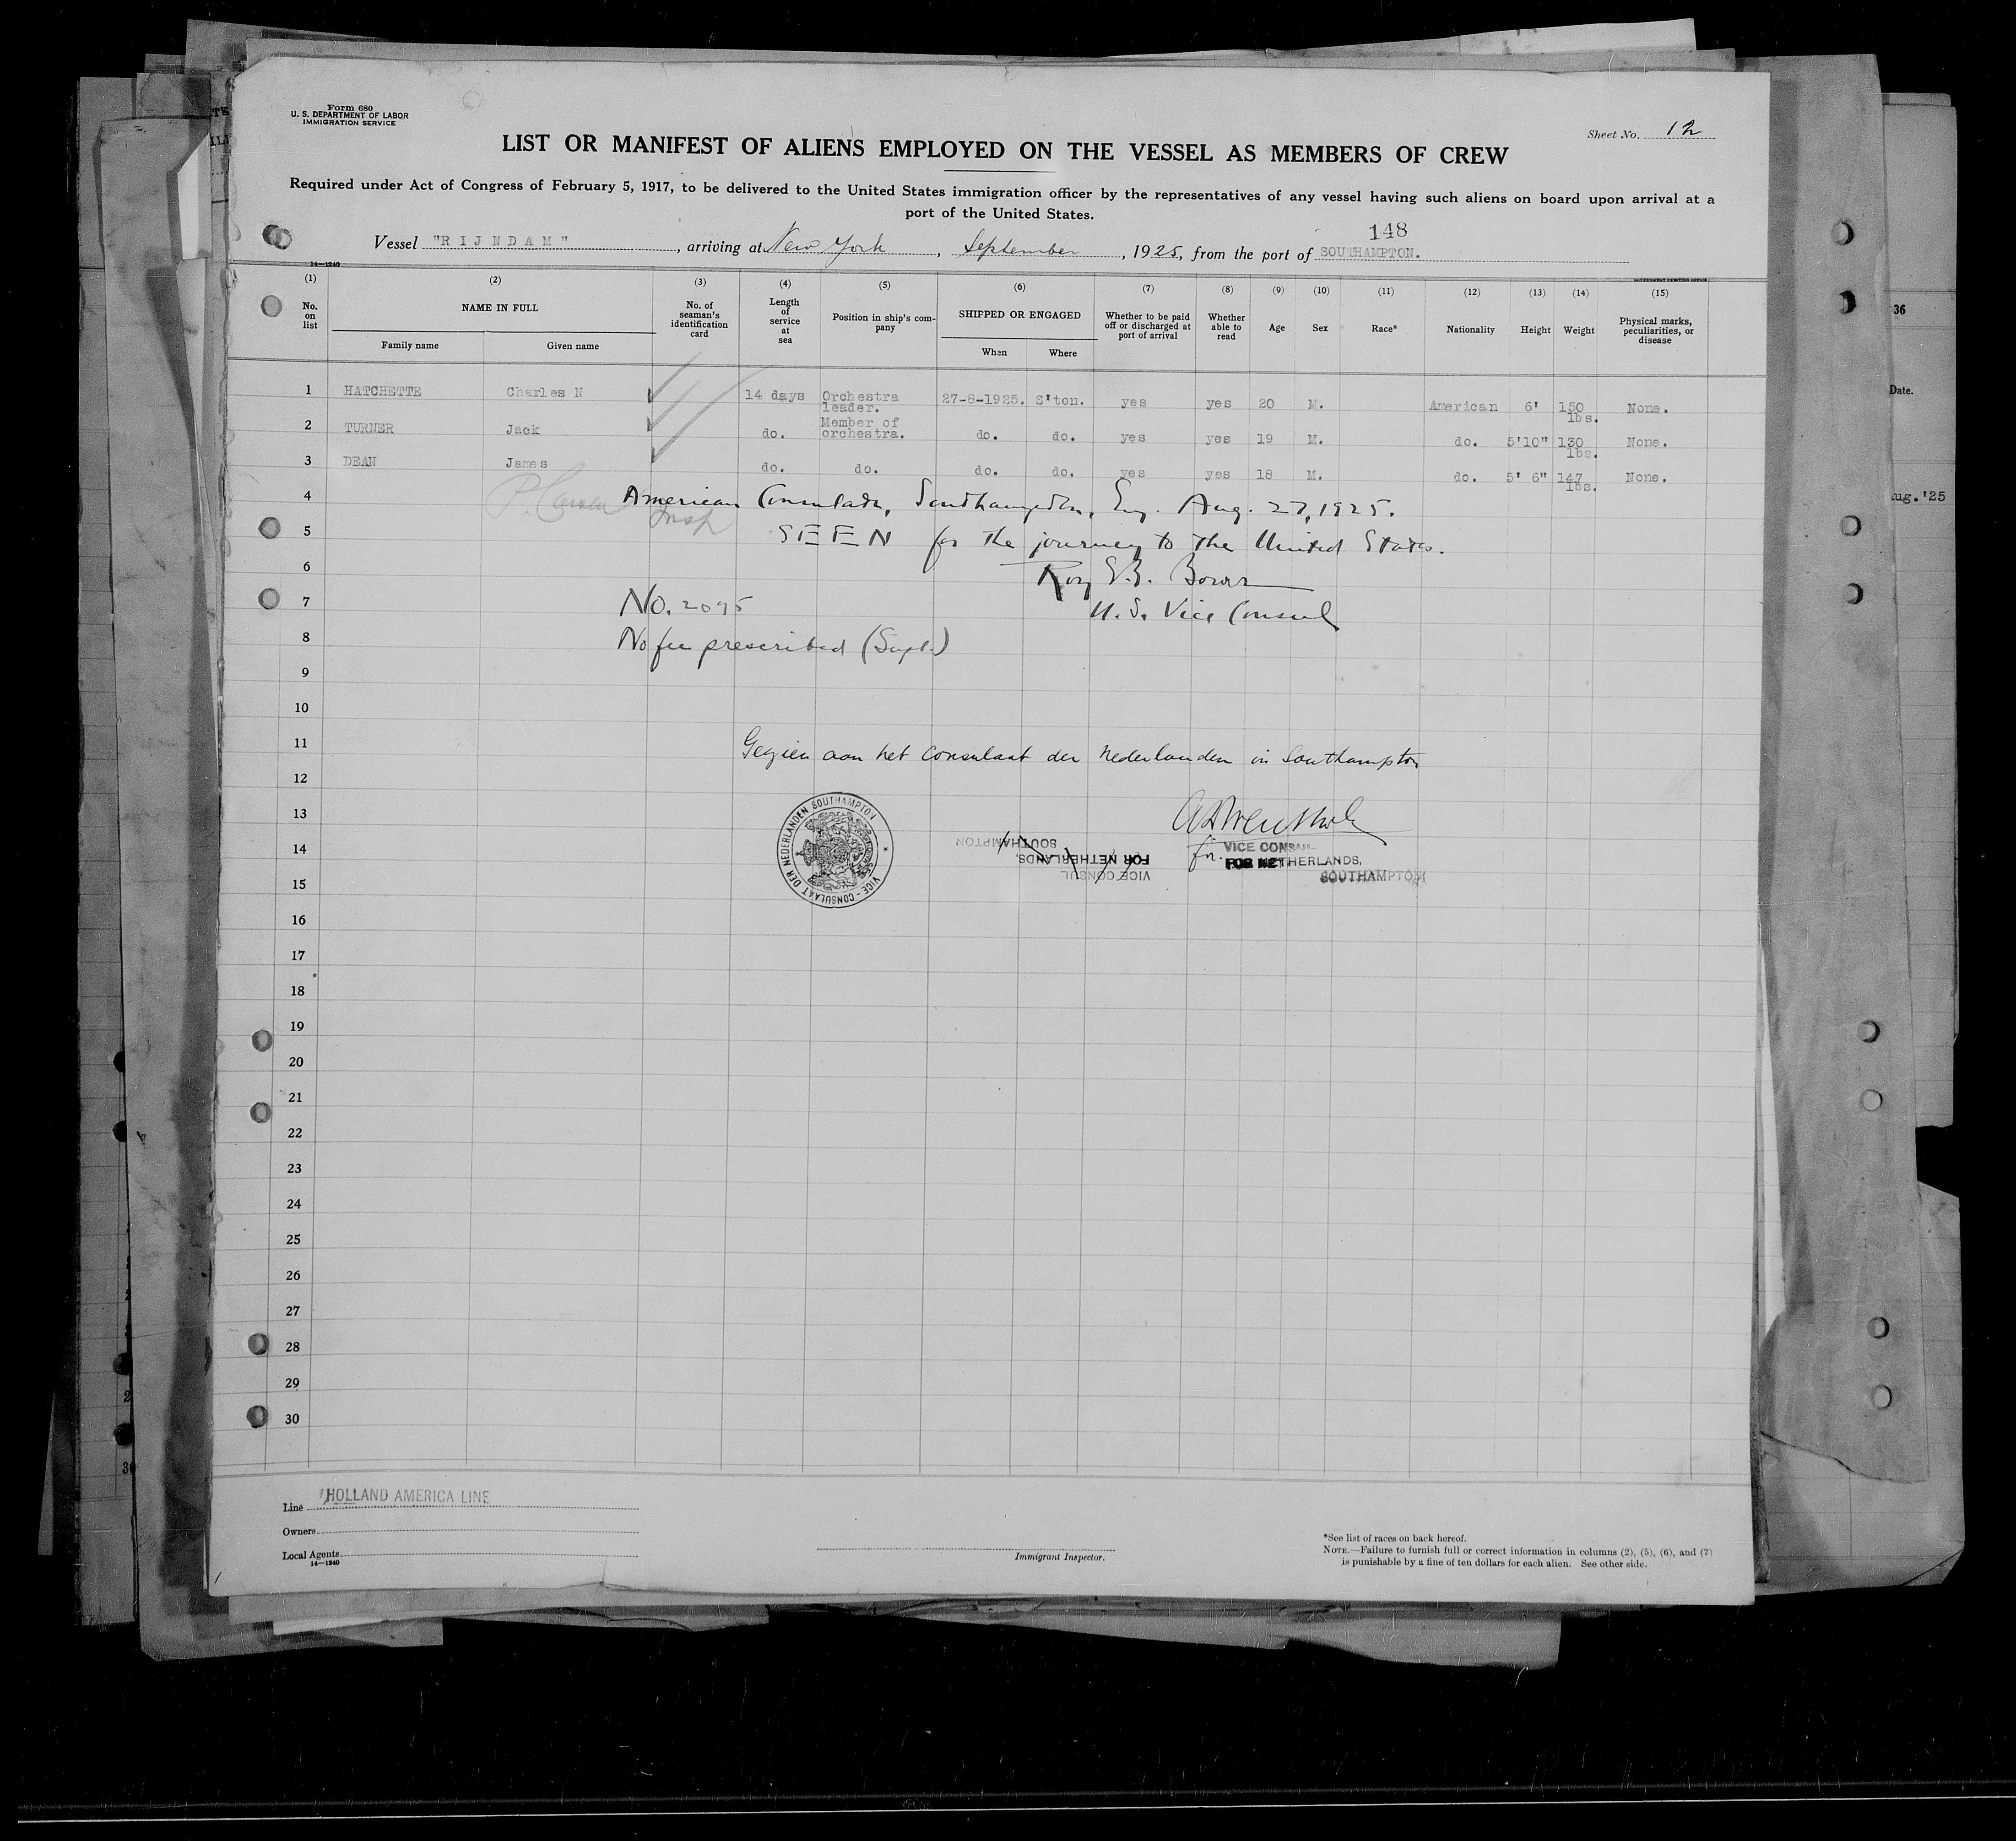 Form 680
U. S. DEPARTMENT OF LABOR
IMMIGRATION SERVICE
Sheet No. 12
LIST OR MANIFEST OF ALIENS EMPLOYED ON THE VESSEL AS MEMBERS OF CREW
Required under Act of Congress of February 5, 1917, to be delivered to the United States immigration officer by the representatives of any vessel having such aliens on board upon arrival at a
port of the United States.
148
Vessel "RIJNDAM", arriving at New York, September, 1925, from the port of SOUTHAMPTON.
14—1240
(1) No. on list
(2) NAME IN FULL
Family name Given name
(3) No. of seaman's identification card
(4) Length of service at sea
(5) Position in ship's company
(6) SHIPPED OR ENGAGED
When Where
(7) Whether to be paid off or discharged at port of arrival
(8) Whether able to read
(9) Age
(10) Sex
(11) Race*
(12) Nationality
(13) Height
(14) Weight
(15) Physical marks, peculiarities, or disease
1 HATCHETTE Charles N 14 days Orchestra leader. 27-8-1925. S'ton. yes yes 20 M. American 6' 150 lbs. None.
2 TURNER Jack do. Member of orchestra. do. do. yes yes 19 M. do. 5'10" 130 lbs. None.
3 DEAN James do. do. do. do. yes yes 18 M. do. 5' 6" 147 lbs. None.
4 American Consulate, Southampton, Eng. Aug. 27, 1925.
Insp
5 SEEN for the journey to the United States.
6 Roy E.B. Bower
7 No. 2095 U. S. Vice Consul
8 No fee prescribed (Supl.)
9
10
11 Gezien aan het consulaat der Nederlanden in Southampton
12
13
14
15
16
17
18
19
20
21
22
23
24
25
26
27
28
29
30
VICE-CONSULAAT DER NEDERLANDEN SOUTHAMPTON
VICE CONSUL
FOR NETHERLANDS,
SOUTHAMPTON
for VICE CONSUL
FOR NETHERLANDS,
SOUTHAMPTON
Line HOLLAND AMERICA LINE
Owners
Local Agents
14—1240
Immigrant Inspector.
*See list of races on back hereof.
NOTE.—Failure to furnish full or correct information in columns (2), (5), (6), and (7)
is punishable by a fine of ten dollars for each alien. See other side.
36
Date.
Aug. '25